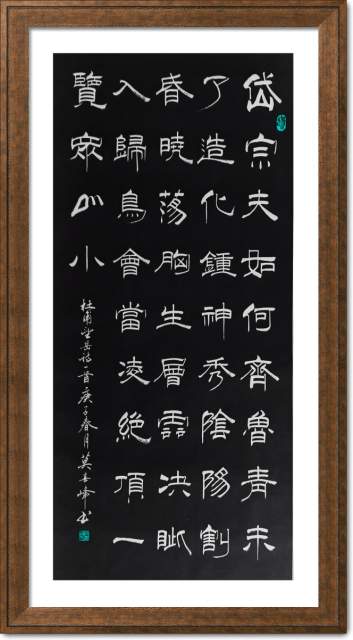 岱宗夫如何齊魯青未
了造化鍾神秀陰陽割
昏曉蕩胸生層雲決眦
入歸鳥會當凌絕頂一
覽眾山小
杜甫望岳詩一首庚子春月莫善峰书